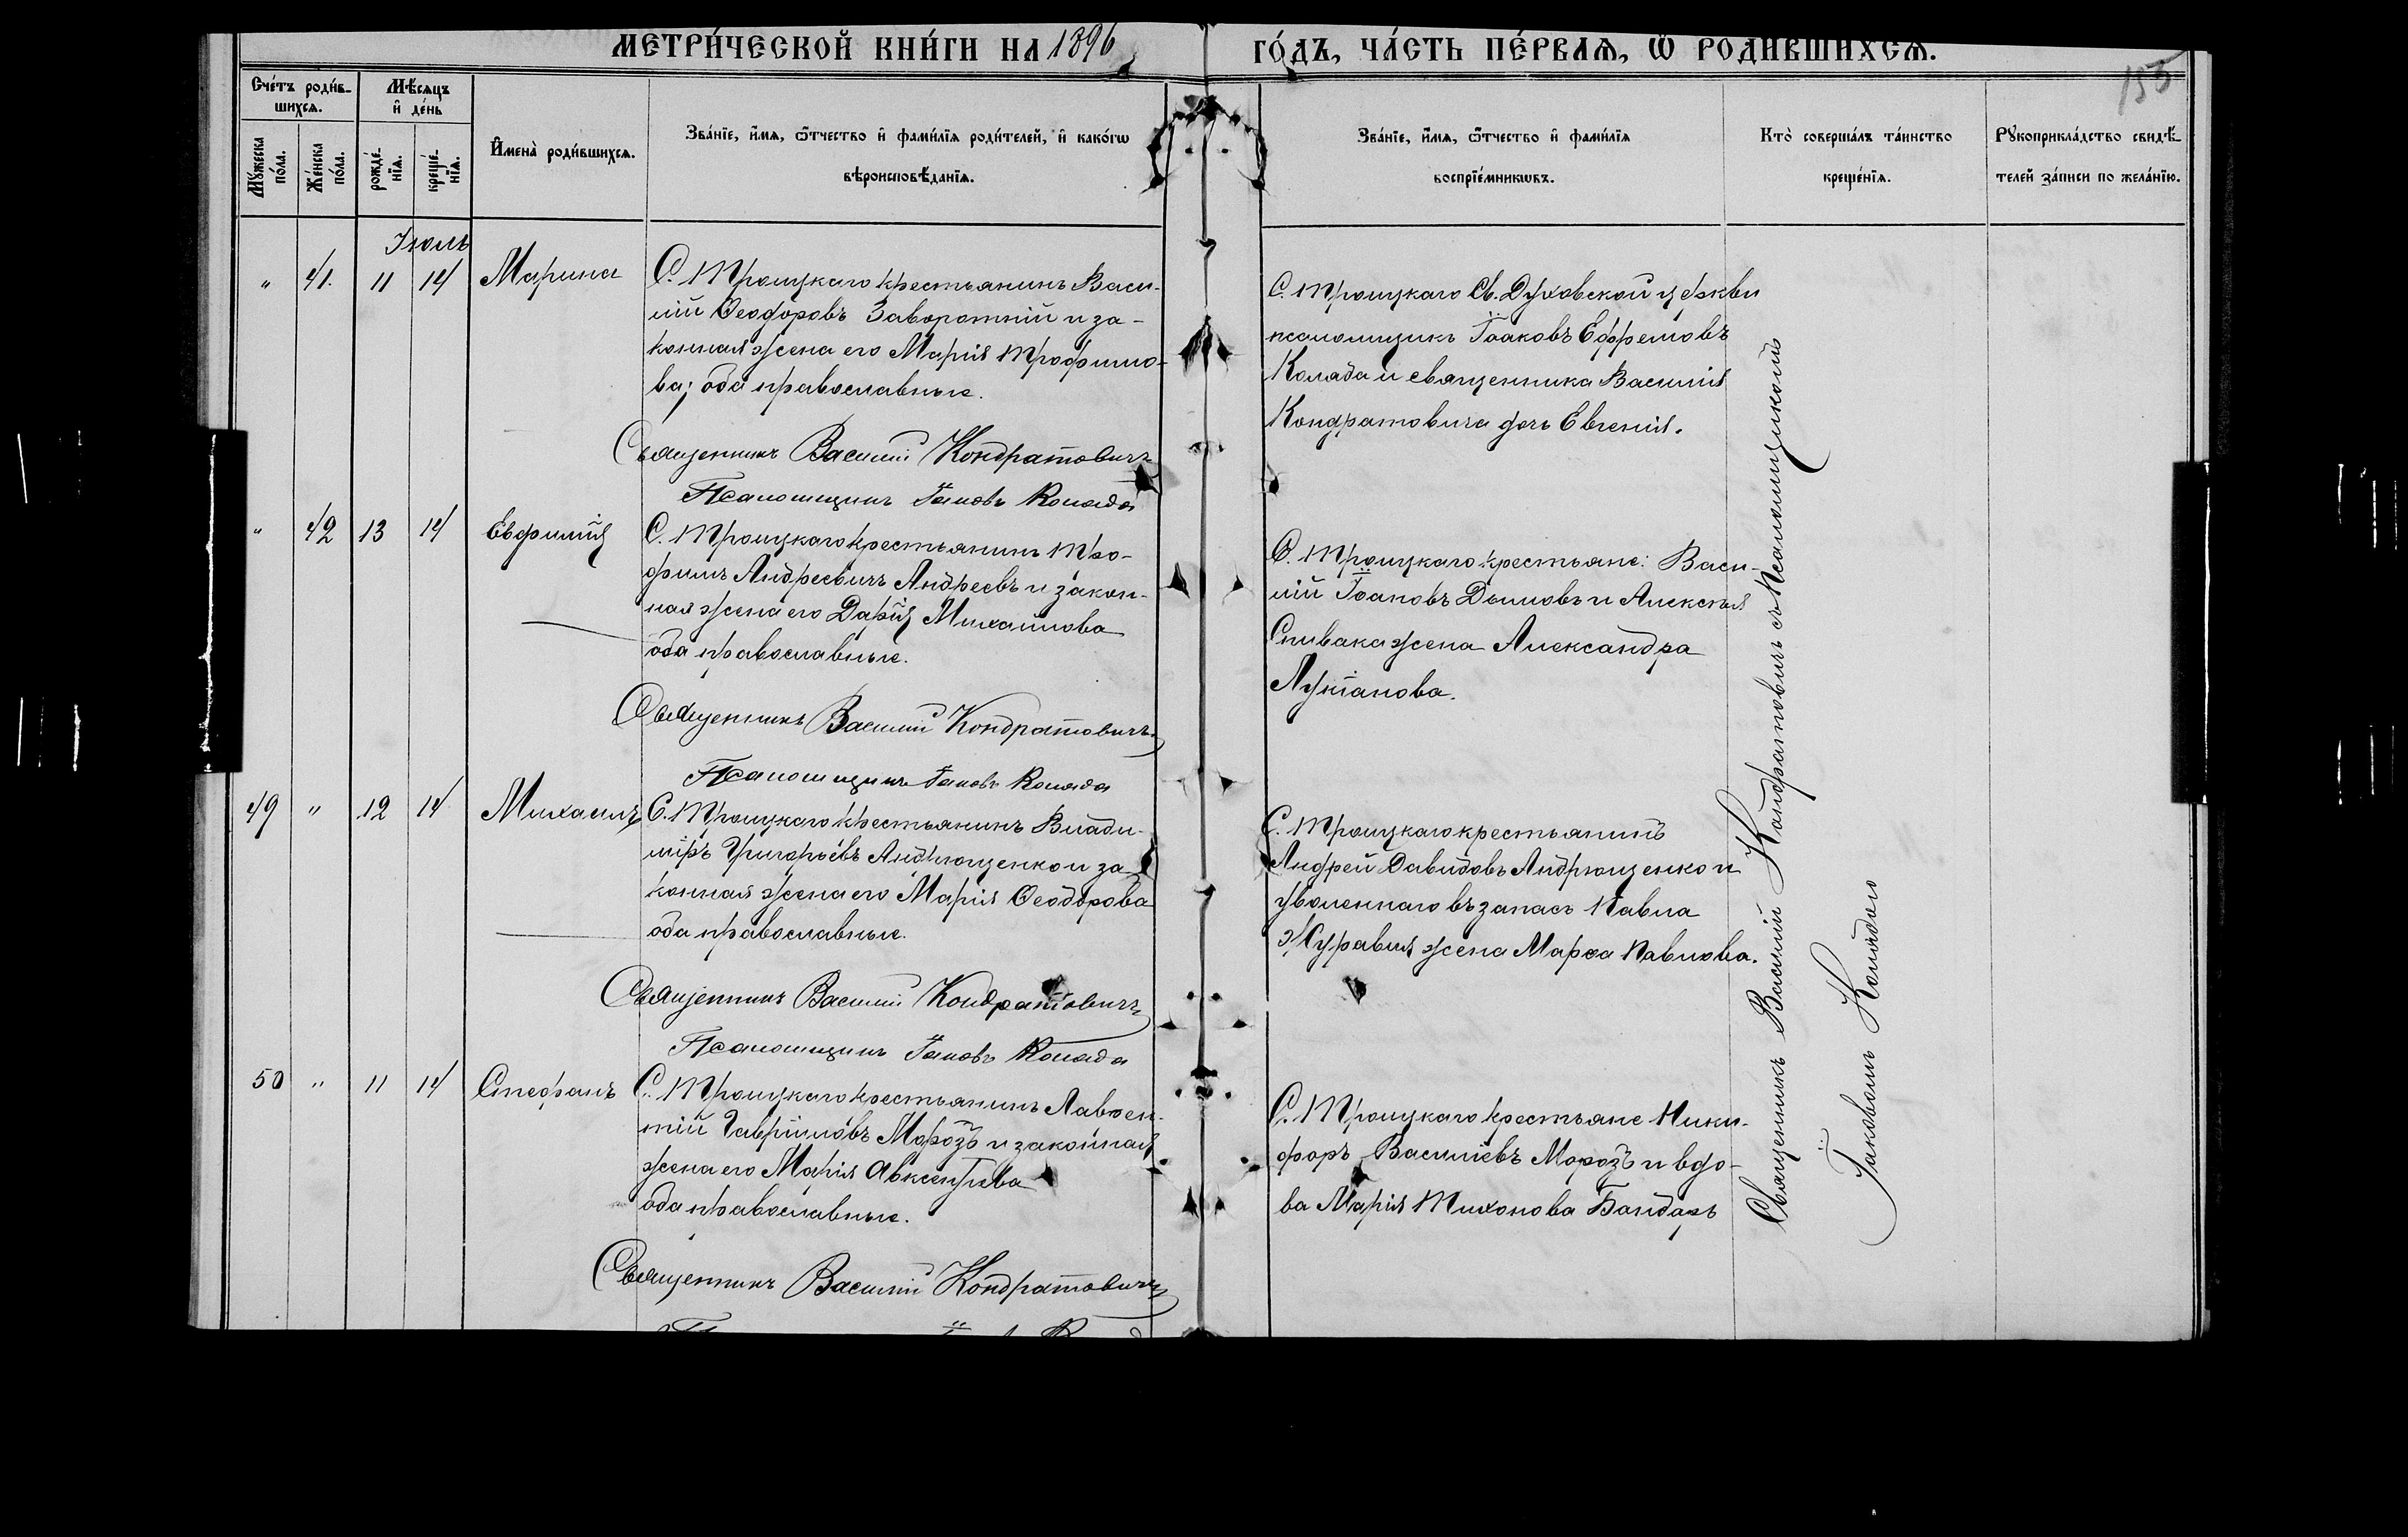 МЕТРИ́ЧЕСКОЙ КНИ́ГИ НА 1896 ГО́ДЪ, ЧА́СТЬ ПЕ́РВАѦ, Ѿ РОДИ́ВШИХСѦ.
155
Сче́тъ роди́в-
шихсѧ.
Мѣ́сѧцъ
и҆ де́нь
Мꙋ́жеска
по́ла.
Же́нска
по́ла.
рожде́-
нїѧ.
креще́-
нїѧ.
И҆мена̀ роди́вшихсѧ.
Зва́нїе, и҆́мѧ, ѻ҆́тчество и҆ фами́лїѧ роди́телей, и҆ како́гѡ
вѣроисповѣ́данїѧ.
Зва́нїе, и҆́мѧ, ѻ҆́тчество и҆ фами́лїѧ
воспрїе́мникѡвъ.
Кто̀ соверша́лъ та́инство
креще́нїѧ.
Рꙋкоприкла́дство свидѣ́-
телей за́писи по жела́нїю.
Іюль
" 41. 11 14 Марина
С. Троицкаго крестьянинъ Васи-
лій Ѳеодоровъ Заворотній и за-
конная жена его Марія Трофимо-
ва; оба православные.
Священникъ Василій Кондратовичъ
Псаломщикъ Іаковъ Коляда
С. Троицкаго Св. Духовской церкви
псаломщикъ Іоаковъ Ефремовъ
Коляда и священника Василія
Кондратовича дочь Евгенія.
" 42 13 14 Евфимія
С. Троицкаго крестьянинъ Тро-
фимъ Андреевичъ Андреевъ и закон-
ная жена его Дарія Михаилова
оба православные.
Священникъ Василій Кондратовичъ
Псаломщикъ Іаковъ Коляда
С. Троицкаго крестьяне: Васи-
лій Іоановъ Дымовъ и Алексѣя
Спивака жена Александра
Лукіанова.
49 " 12 14 Михаилъ
С. Троицкаго крестьянинъ Влади-
міръ Григорьевъ Андрющенко и за-
конная жена его Марія Ѳеодорова
оба православные.
Священникъ Василій Кондратовичъ
Псаломщикъ Іаковъ Коляда
С. Троицкаго крестьянинъ
Андрей Давидовъ Андрющенко и
уволеннаго въ запасъ Павла
Журавля жена Марѳа Павлова.
50 " 11 14 Стефанъ
С. Троицкаго крестьянинъ Лаврен-
тій Гавріиловъ Морозъ и законная
жена его Марія Авксентіева
оба православные.
Священникъ Василій Кондратовичъ
С. Троицкаго крестьяне Ники-
форъ Василіевъ Морозъ и вдо-
ва Марія Тихонова Бандаръ
Священникъ Василій Кондратовичъ съ Псаломщикомъ
Іаковомъ Колядою